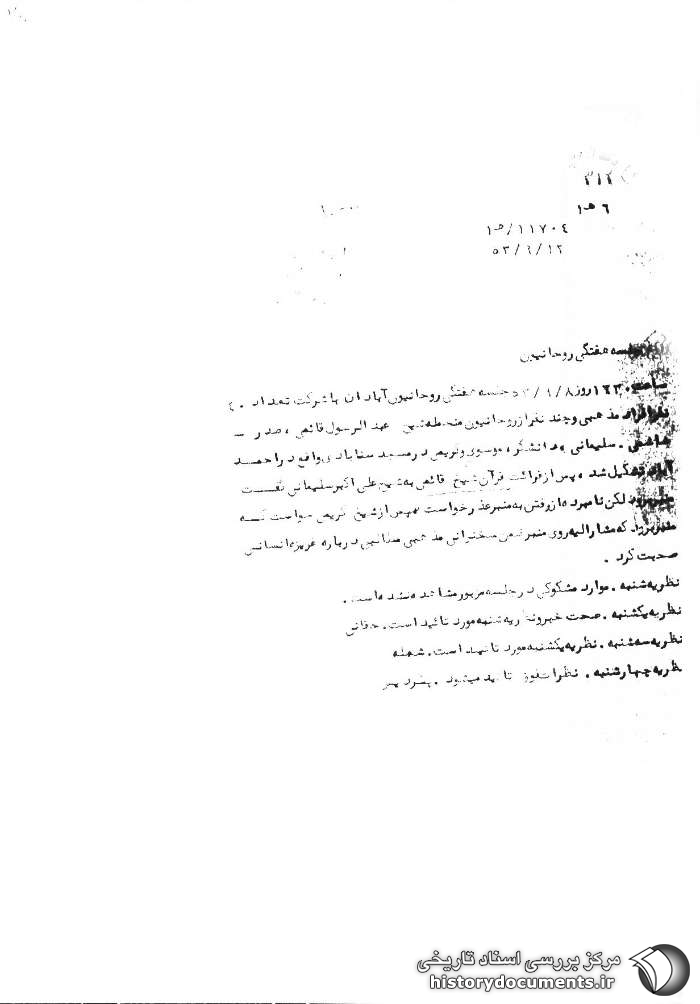 ۳۱۲
۶ ﻫ ۱
۱۱۷۰٤/ﻫ ۱
۵۳/۶/۱۲
جلسه هفتگی روحانیون
ساعت ۱۶۳۰ روز ۵۳/۶/۸ جلسه هفتگی روحانیون آبادان با شرکت تعداد ٤۰
نفر افراد مذهبی و چند نفر از روحانیون منطقه شیخ عبدالرسول قائمی ، صدر -
هاشمی . سلیمانی . دانشگر ، موسوی و قریص در مسجد سنابادی واقع در احمد
آباد تشکیل شد . پس از قرائت قرآن شیخ قائمی به شیخ علی اکبر سلیمانی گفت
منبر برود لکن نامبرده از رفتن به منبر عذر خواست سپس از شیخ قریص خواست که
منبر برود که مشارالیه روی منبر ضمن سخنرانی مذهبی مطالبی درباره غریزه انسانی
صحبت کرد .
نظریه شنبه . موارد مشکوکی در جلسه مزبور مشاهده نشده است .
نظریه یکشنبه . صحت خبر و نظریه شنبه مورد تائید است . حقانی
نظریه سه شنبه . نظریه یکشنبه مورد تائید است . شعله
نظریه چهارشنبه . نظرات فوق تائید میشود .
مرکز بررسی اسناد تاریخی
historydocuments.ir